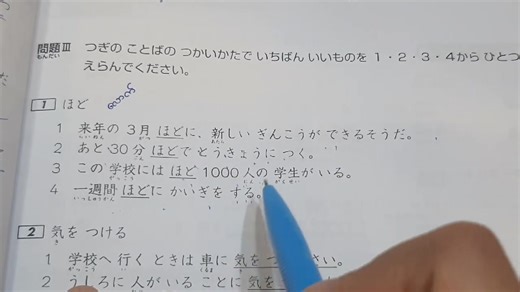 問題Ⅲ つぎの ことばの つかいかたで いちばん いいものを 1・2・3・4から ひとつ
えらんでください。
1 ほど
1 来年の 3月 ほどに、新しい ぎんこうが できるそうだ。
2 あと 30分 ほどで とうきょうに つく。
3 この 学校には ほど 1000人の 学生が いる。
4 一週間 ほどに かいぎを する。
2 気を つける
1 学校へ 行く ときは 車に 気を つ さい。
2 うしろに 人が いる ことに 気を